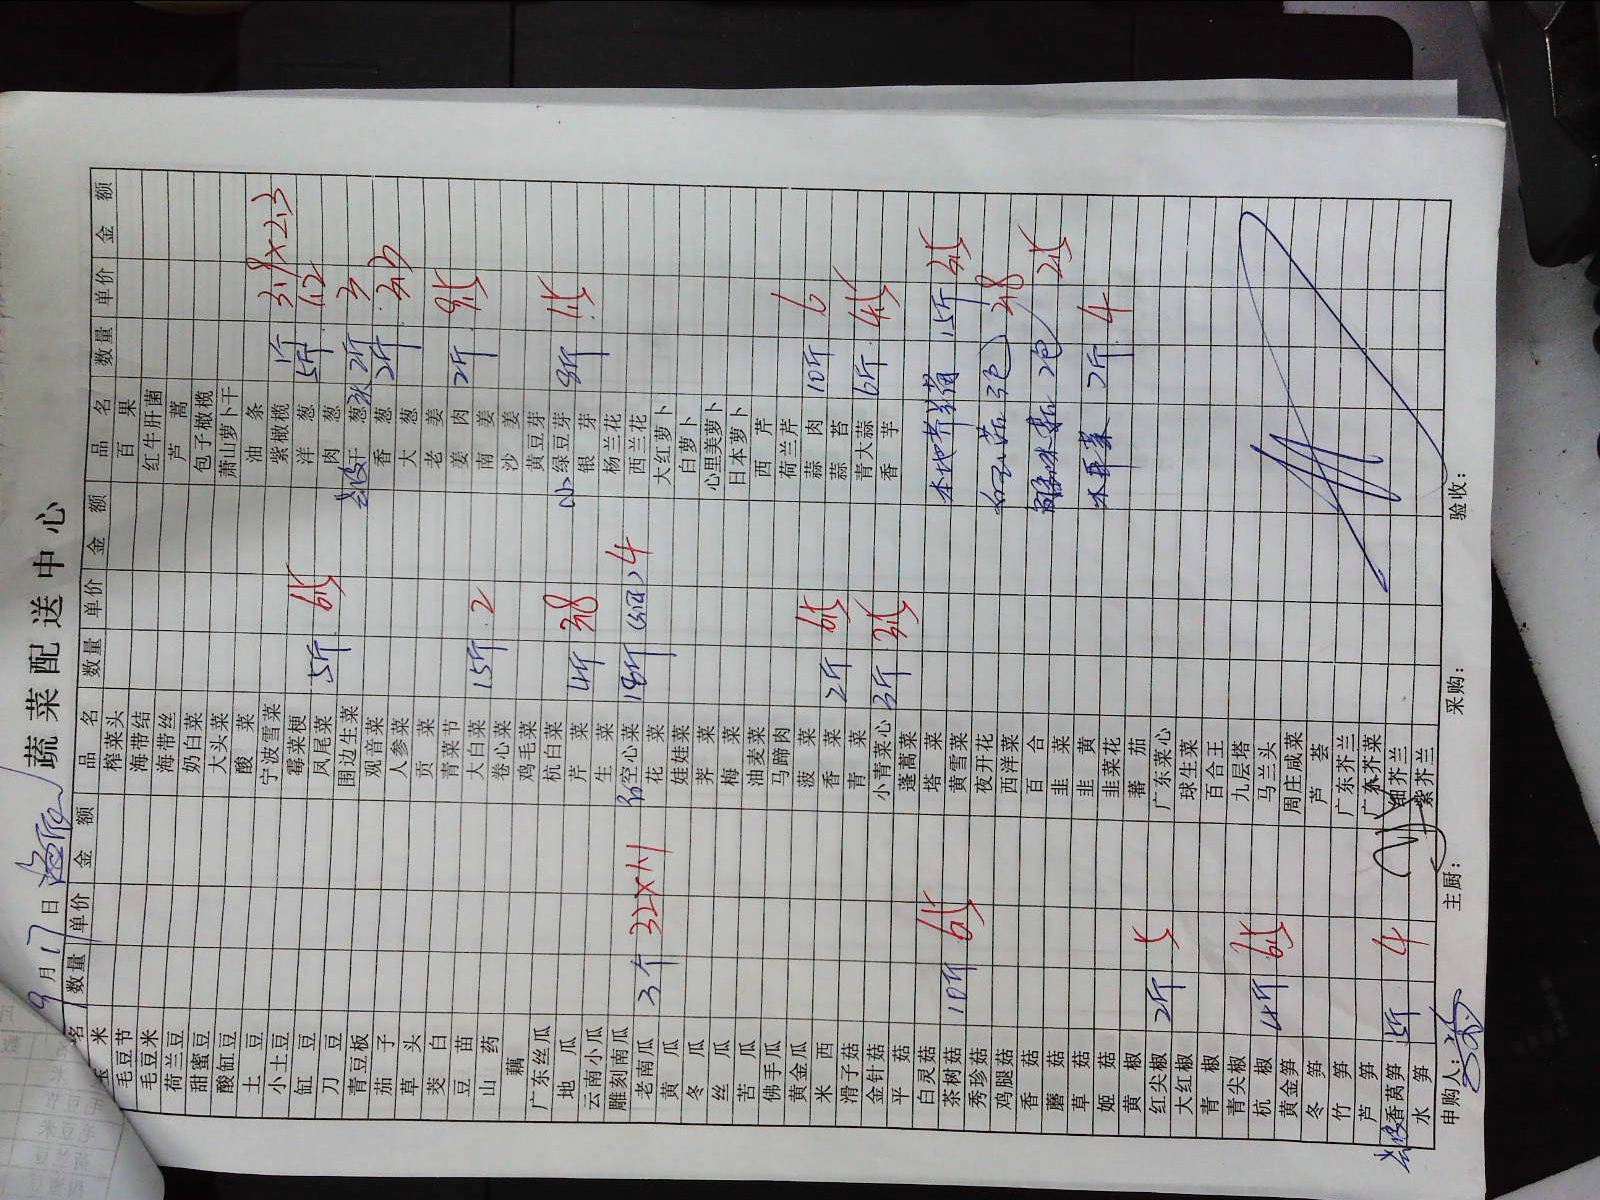 蔬菜配送中心
9月17日
品名 数量 单价 金额 品名 数量 单价 金额 品名 数量 单价 金额
玉米 榨菜头 百果
毛豆节 海带结 红牛肝菌
毛豆米 海带丝 芦蒿
荷兰豆 奶白菜 包子橄榄
甜蜜豆 大头菜 萧山萝卜干
酸缸豆 酸菜 油条
土豆 宁波雪菜 紫橄榄 1斤 3.8×2.3
小土豆 霉菜梗 洋葱 5斤 1.2
缸豆 凤尾菜 5斤 6.5 肉葱
刀豆 围边生菜 干葱 2斤 3
青豆板 观音菜 香葱 2斤 3.0
茄子 人参菜 大葱
草头 贡菜 老姜
茭白 青菜节 姜肉 2斤 9.5
豆苗 大白菜 15斤 2 南姜
山药 卷心菜 沙姜
藕 鸡毛菜 黄豆芽
广东丝瓜 杭白菜 绿豆芽 8斤 1.5
地瓜 芹菜 4斤 3.8 银芽
云南小瓜 生菜 杨兰花
雕刻南瓜 空心菜 18斤 4 西兰花
老南瓜 3个 32×1.1 花菜 大红萝卜
黄瓜 娃娃菜 白萝卜
冬瓜 荠菜 心里美萝卜
丝瓜 梅菜 日本萝卜
苦瓜 油麦菜 西芹
佛手瓜 马蹄肉 荷兰芹
黄金瓜 菠菜 蒜肉 10斤 6
米西 香菜 2斤 6.5 蒜苔
滑子菇 青菜 青大蒜 6斤 4.5
金针菇 小青菜心 3斤 3.5 香芋
平菇 蓬蒿菜
白灵菇 塔菜 本地芹菜 15斤 3.5
茶树菇 10斤 6.5 黄雪菜
秀珍菇 夜开花 3包 2.8
鸡腿菇 西洋菜
香菇 百合 2包 2.5
蘑菇 韭菜
草菇 韭黄 菜 2斤 4
姬菇 韭菜花
黄椒 蕃茄
红尖椒 2斤 5 广东菜心
大红椒 球生菜
青椒 百合王
青尖椒 九层塔
杭椒 4斤 6.5 马兰头
黄金笋 周庄咸菜
冬笋 芦荟
竹笋 广东芥兰
芦笋 广东芥菜
香莴笋 5斤 4 细芥兰
水笋 紫芥兰
申购人： 主厨： 采购： 验收：